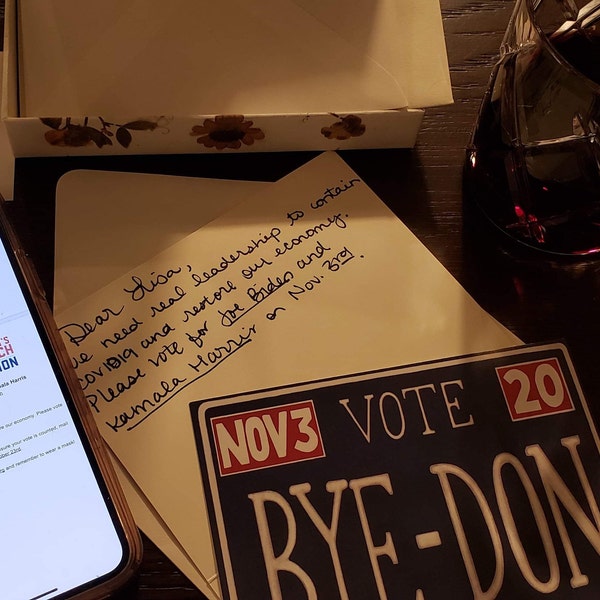 Dear Lisa,
we need real leadership to contain
COVID19 and restore our economy.
Please vote for Joe Biden and
Kamala Harris on Nov. 3rd.
NOV3 VOTE 20
BYE-DON
Harris
our economy. Please vote
your vote is counted, mail
23rd.
and remember to wear a mask!